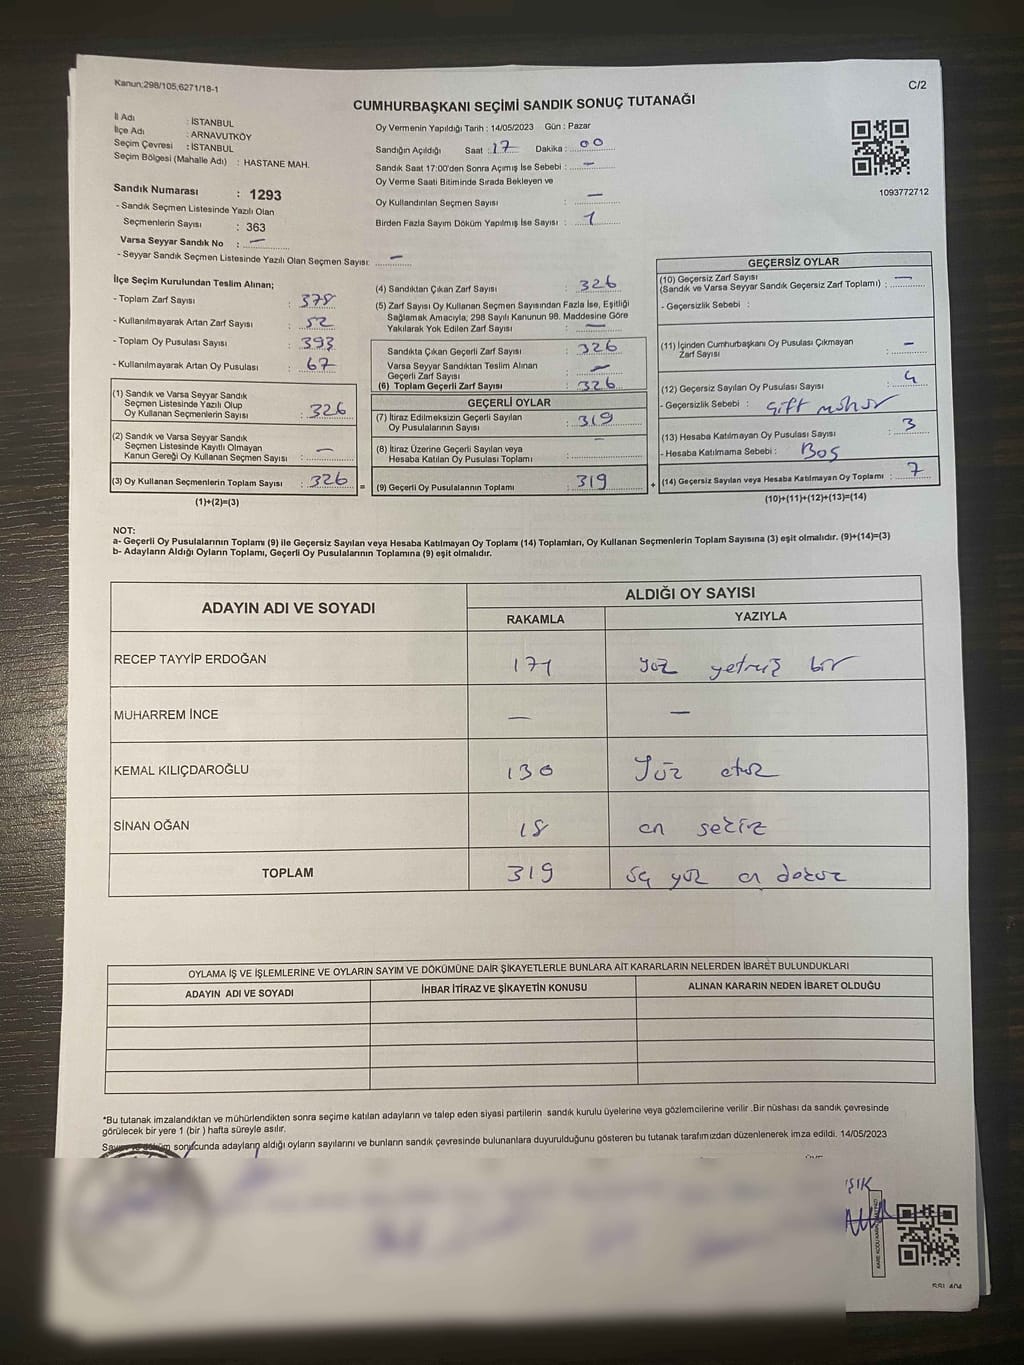 Kanun;298/105;6271/18-1
C/2
CUMHURBAŞKANI SEÇİMİ SANDIK SONUÇ TUTANAĞI
İl Adı : İSTANBUL
İlçe Adı : ARNAVUTKÖY
Seçim Çevresi : İSTANBUL
Seçim Bölgesi (Mahalle Adı) : HASTANE MAH.
Sandık Numarası : 1293
- Sandık Seçmen Listesinde Yazılı Olan
Seçmenlerin Sayısı : 363
Varsa Seyyar Sandık No : —
- Seyyar Sandık Seçmen Listesinde Yazılı Olan Seçmen Sayısı: —
Oy Vermenin Yapıldığı Tarih : 14/05/2023 Gün : Pazar
Sandığın Açıldığı Saat : 17 Dakika : 00
Sandık Saat 17:00'den Sonra Açımış İse Sebebi : —
Oy Verme Saati Bitiminde Sırada Bekleyen ve
Oy Kullandırılan Seçmen Sayısı : —
Birden Fazla Sayım Döküm Yapılmış İse Sayısı : 1
1093772712
İlçe Seçim Kurulundan Teslim Alınan;
- Toplam Zarf Sayısı : 378
- Kullanılmayarak Artan Zarf Sayısı : 52
- Toplam Oy Pusulası Sayısı : 393
- Kullanılmayarak Artan Oy Pusulası : 67
(1) Sandık ve Varsa Seyyar Sandık
Seçmen Listesinde Yazılı Olup
Oy Kullanan Seçmenlerin Sayısı : 326
(2) Sandık ve Varsa Seyyar Sandık
Seçmen Listesinde Kayıtlı Olmayan
Kanun Gereği Oy Kullanan Seçmen Sayısı : —
(3) Oy Kullanan Seçmenlerin Toplam Sayısı : 326
(1)+(2)=(3)
=
(4) Sandıktan Çıkan Zarf Sayısı : 326
(5) Zarf Sayısı Oy Kullanan Seçmen Sayısından Fazla İse, Eşitliği
Sağlamak Amacıyla; 298 Sayılı Kanunun 98. Maddesine Göre
Yakılarak Yok Edilen Zarf Sayısı : —
Sandıkta Çıkan Geçerli Zarf Sayısı : 326
Varsa Seyyar Sandıktan Teslim Alınan
Geçerli Zarf Sayısı : —
(6) Toplam Geçerli Zarf Sayısı : 326
GEÇERLİ OYLAR
(7) İtiraz Edilmeksizin Geçerli Sayılan
Oy Pusulalarının Sayısı : 319
(8) İtiraz Üzerine Geçerli Sayılan veya
Hesaba Katılan Oy Pusulası Toplamı : —
(9) Geçerli Oy Pusulalarının Toplamı : 319
+
GEÇERSİZ OYLAR
(10) Geçersiz Zarf Sayısı
(Sandık ve Varsa Seyyar Sandık Geçersiz Zarf Toplamı) : —
- Geçersizlik Sebebi :
(11) İçinden Cumhurbaşkanı Oy Pusulası Çıkmayan
Zarf Sayısı : —
(12) Geçersiz Sayılan Oy Pusulası Sayısı : 4
- Geçersizlik Sebebi : Çift mühür
(13) Hesaba Katılmayan Oy Pusulası Sayısı : 3
- Hesaba Katılmama Sebebi : Boş
(14) Geçersiz Sayılan veya Hesaba Katılmayan Oy Toplamı : 7
(10)+(11)+(12)+(13)=(14)
NOT:
a- Geçerli Oy Pusulalarının Toplamı (9) ile Geçersiz Sayılan veya Hesaba Katılmayan Oy Toplamı (14) Toplamları, Oy Kullanan Seçmenlerin Toplam Sayısına (3) eşit olmalıdır. (9)+(14)=(3)
b- Adayların Aldığı Oyların Toplamı, Geçerli Oy Pusulalarının Toplamına (9) eşit olmalıdır.
ADAYIN ADI VE SOYADI ALDIĞI OY SAYISI
RAKAMLA YAZIYLA
RECEP TAYYİP ERDOĞAN 171 yüz yetmiş bir
MUHARREM İNCE — —
KEMAL KILIÇDAROĞLU 130 Yüz otuz
SİNAN OĞAN 18 on sekiz
TOPLAM 319 üç yüz on dokuz
OYLAMA İŞ VE İŞLEMLERİNE VE OYLARIN SAYIM VE DÖKÜMÜNE DAİR ŞİKAYETLERLE BUNLARA AİT KARARLARIN NELERDEN İBARET BULUNDUKLARI
ADAYIN ADI VE SOYADI İHBAR İTİRAZ VE ŞİKAYETİN KONUSU ALINAN KARARIN NEDEN İBARET OLDUĞU
*Bu tutanak imzalandıktan ve mühürlendikten sonra seçime katılan adayların ve talep eden siyasi partilerin sandık kurulu üyelerine veya gözlemcilerine verilir .Bir nüshası da sandık çevresinde
görülecek bir yere 1 (bir ) hafta süreyle asılır.
sonucunda adayların aldığı oyların sayılarını ve bunların sandık çevresinde bulunanlara duyurulduğunu gösteren bu tutanak tarafımızdan düzenlenerek imza edildi. 14/05/2023
IŞIK